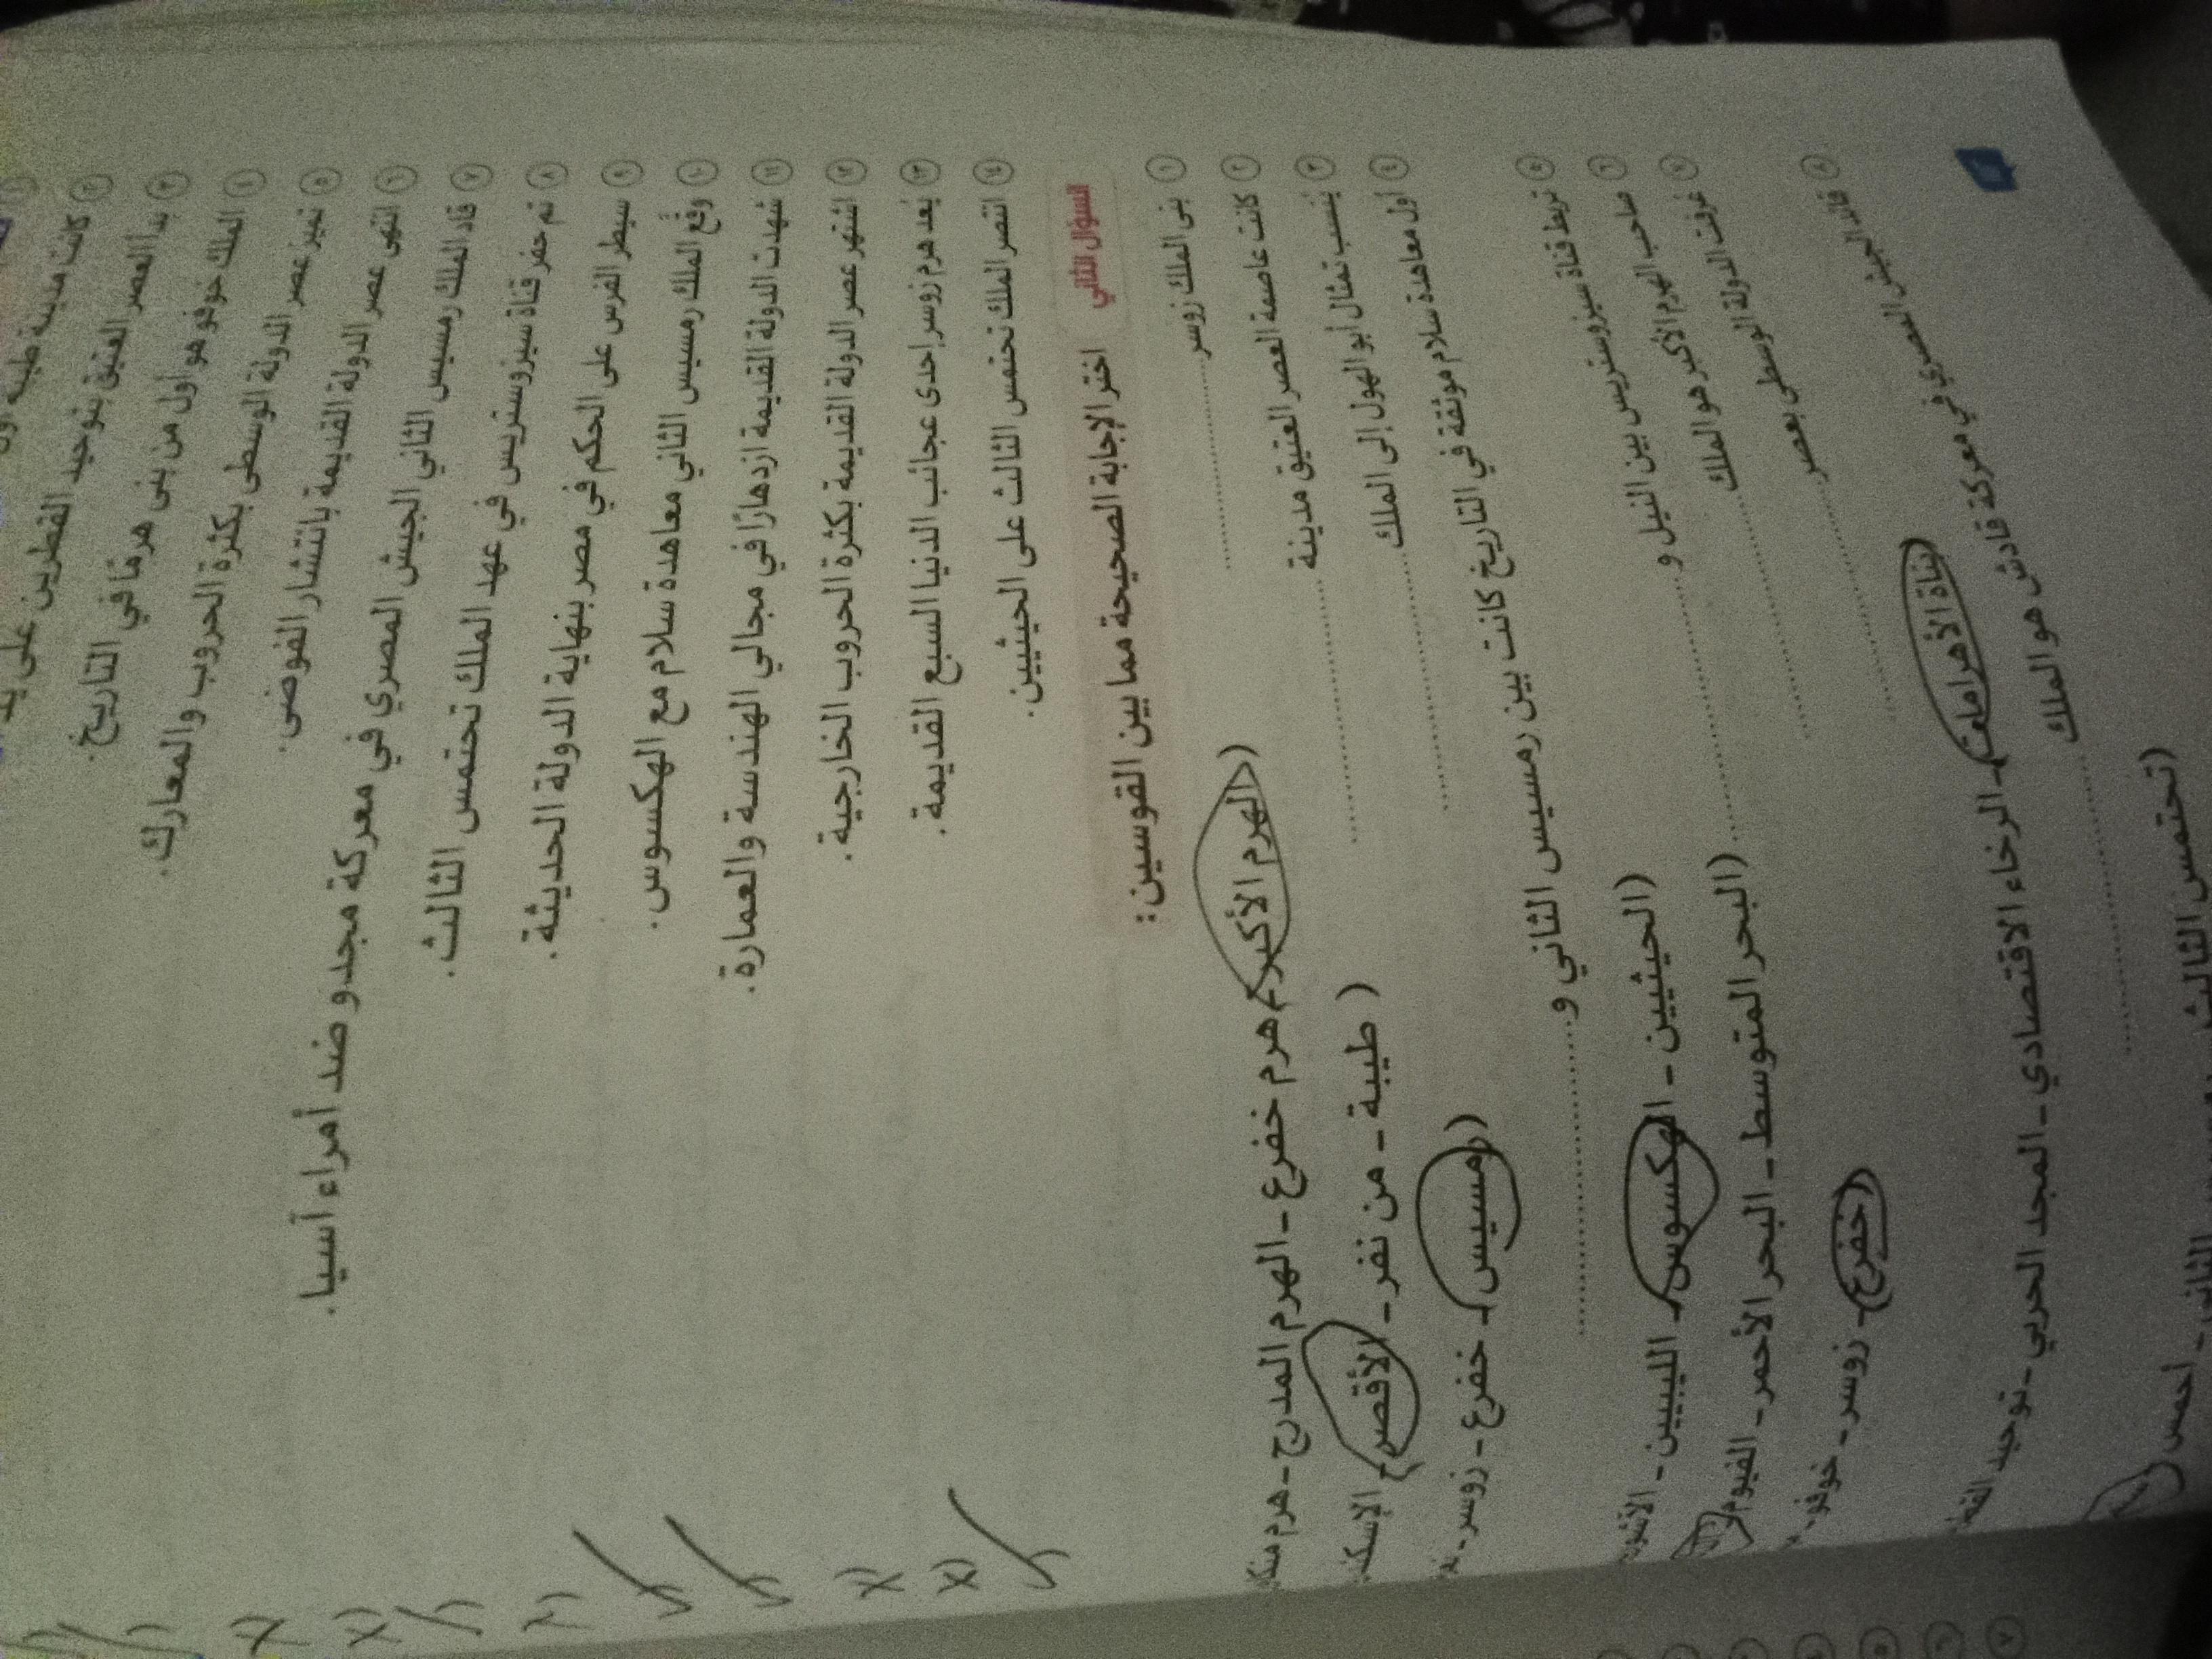 كانت مدينة طيبة
بدأ العصر العتيق بتوحيد القطرين على يد
٤ الملك خوفو هو أول من بنى هرمًا في التاريخ.
٥ تميز عصر الدولة الوسطى بكثرة الحروب والمعارك.
٦ انتهى عصر الدولة القديمة بانتشار الفوضى.
٧ قاد الملك رمسيس الثاني الجيش المصري في معركة مجدو ضد أمراء آسيا.
٨ تم حفر قناة سيزوستريس في عهد الملك تحتمس الثالث.
٩ سيطر الفرس على الحكم في مصر بنهاية الدولة الحديثة.
١٠ وقَّع الملك رمسيس الثاني معاهدة سلام مع الهكسوس.
١١ شهدت الدولة القديمة ازدهارًا في مجالي الهندسة والعمارة.
١٢ اشتهر عصر الدولة القديمة بكثرة الحروب الخارجية.
١٣ يُعد هرم زوسر إحدى عجائب الدنيا السبع القديمة.
١٤ انتصر الملك تحتمس الثالث على الحيثيين.
السؤال الثاني اختر الإجابة الصحيحة مما بين القوسين:
١ بنى الملك زوسر ..............
(الهرم الأكبر - هرم خفرع - الهرم المدرج - هرم
٢ كانت عاصمة العصر العتيق مدينة ..............
( طيبة - من نفر - الأقصر -
٣ يُنسب تمثال أبو الهول إلى الملك ..............
(رمسيس - خفرع - زوسر -
٤ أول معاهدة سلام موثقة في التاريخ كانت بين رمسيس الثاني و ..............
(الحيثيين - الهكسوس - الليبيين -
٥ تربط قناة سيزوستريس بين النيل و ..............
(البحر المتوسط - البحر الأحمر - الفيوم
٦ صاحب الهرم الأكبر هو الملك ..............
(خفرع - زوسر - خوفو -
٧ عرفت الدولة الوسطى بعصر ..............
(بناة الأهرامات - الرخاء الاقتصادي - المجد الحربي - توحيد
٨ قائد الجيش المصري في معركة قادش هو الملك ..............
(تحتمس الثالث - الثاني - أحمس